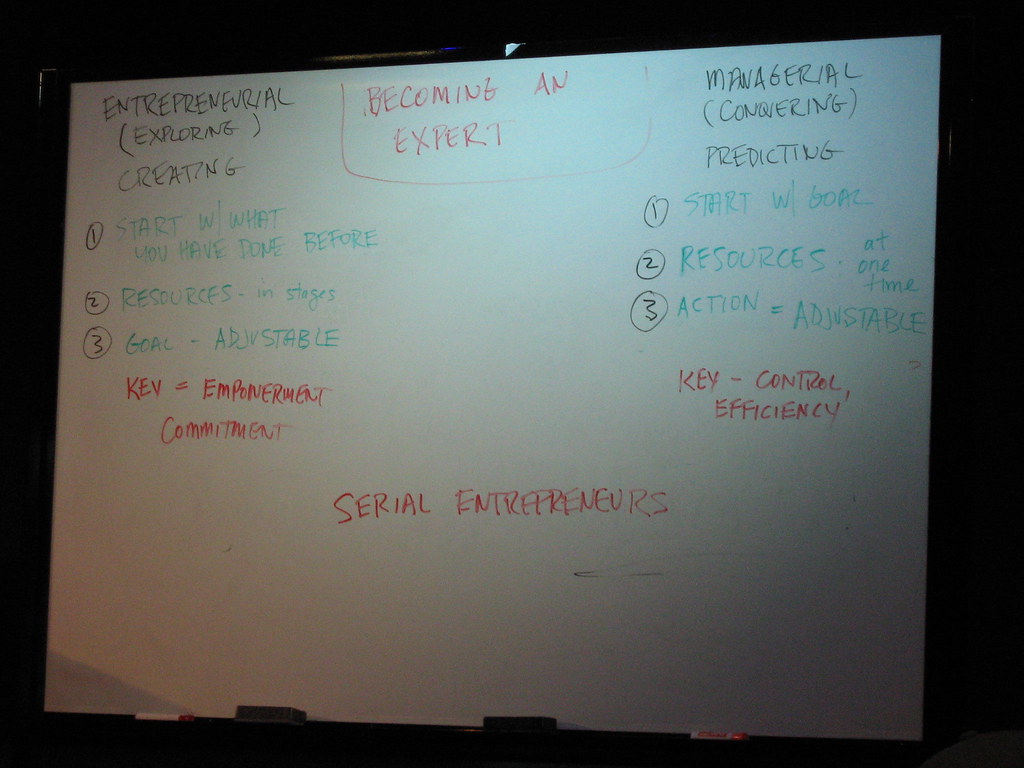 BECOMING AN
EXPERT
ENTREPRENEURIAL
(EXPLORING)
CREATING
1 START W/ WHAT
YOU HAVE DONE BEFORE
2 RESOURCES - in stages
3 GOAL - ADJUSTABLE
KEY = EMPOWERMENT
COMMITMENT
MANAGERIAL
(CONQUERING)
PREDICTING
1 START W/ GOAL
2 RESOURCES - at
one
time
3 ACTION = ADJUSTABLE
KEY - CONTROL,
EFFICIENCY
SERIAL ENTREPRENEURS